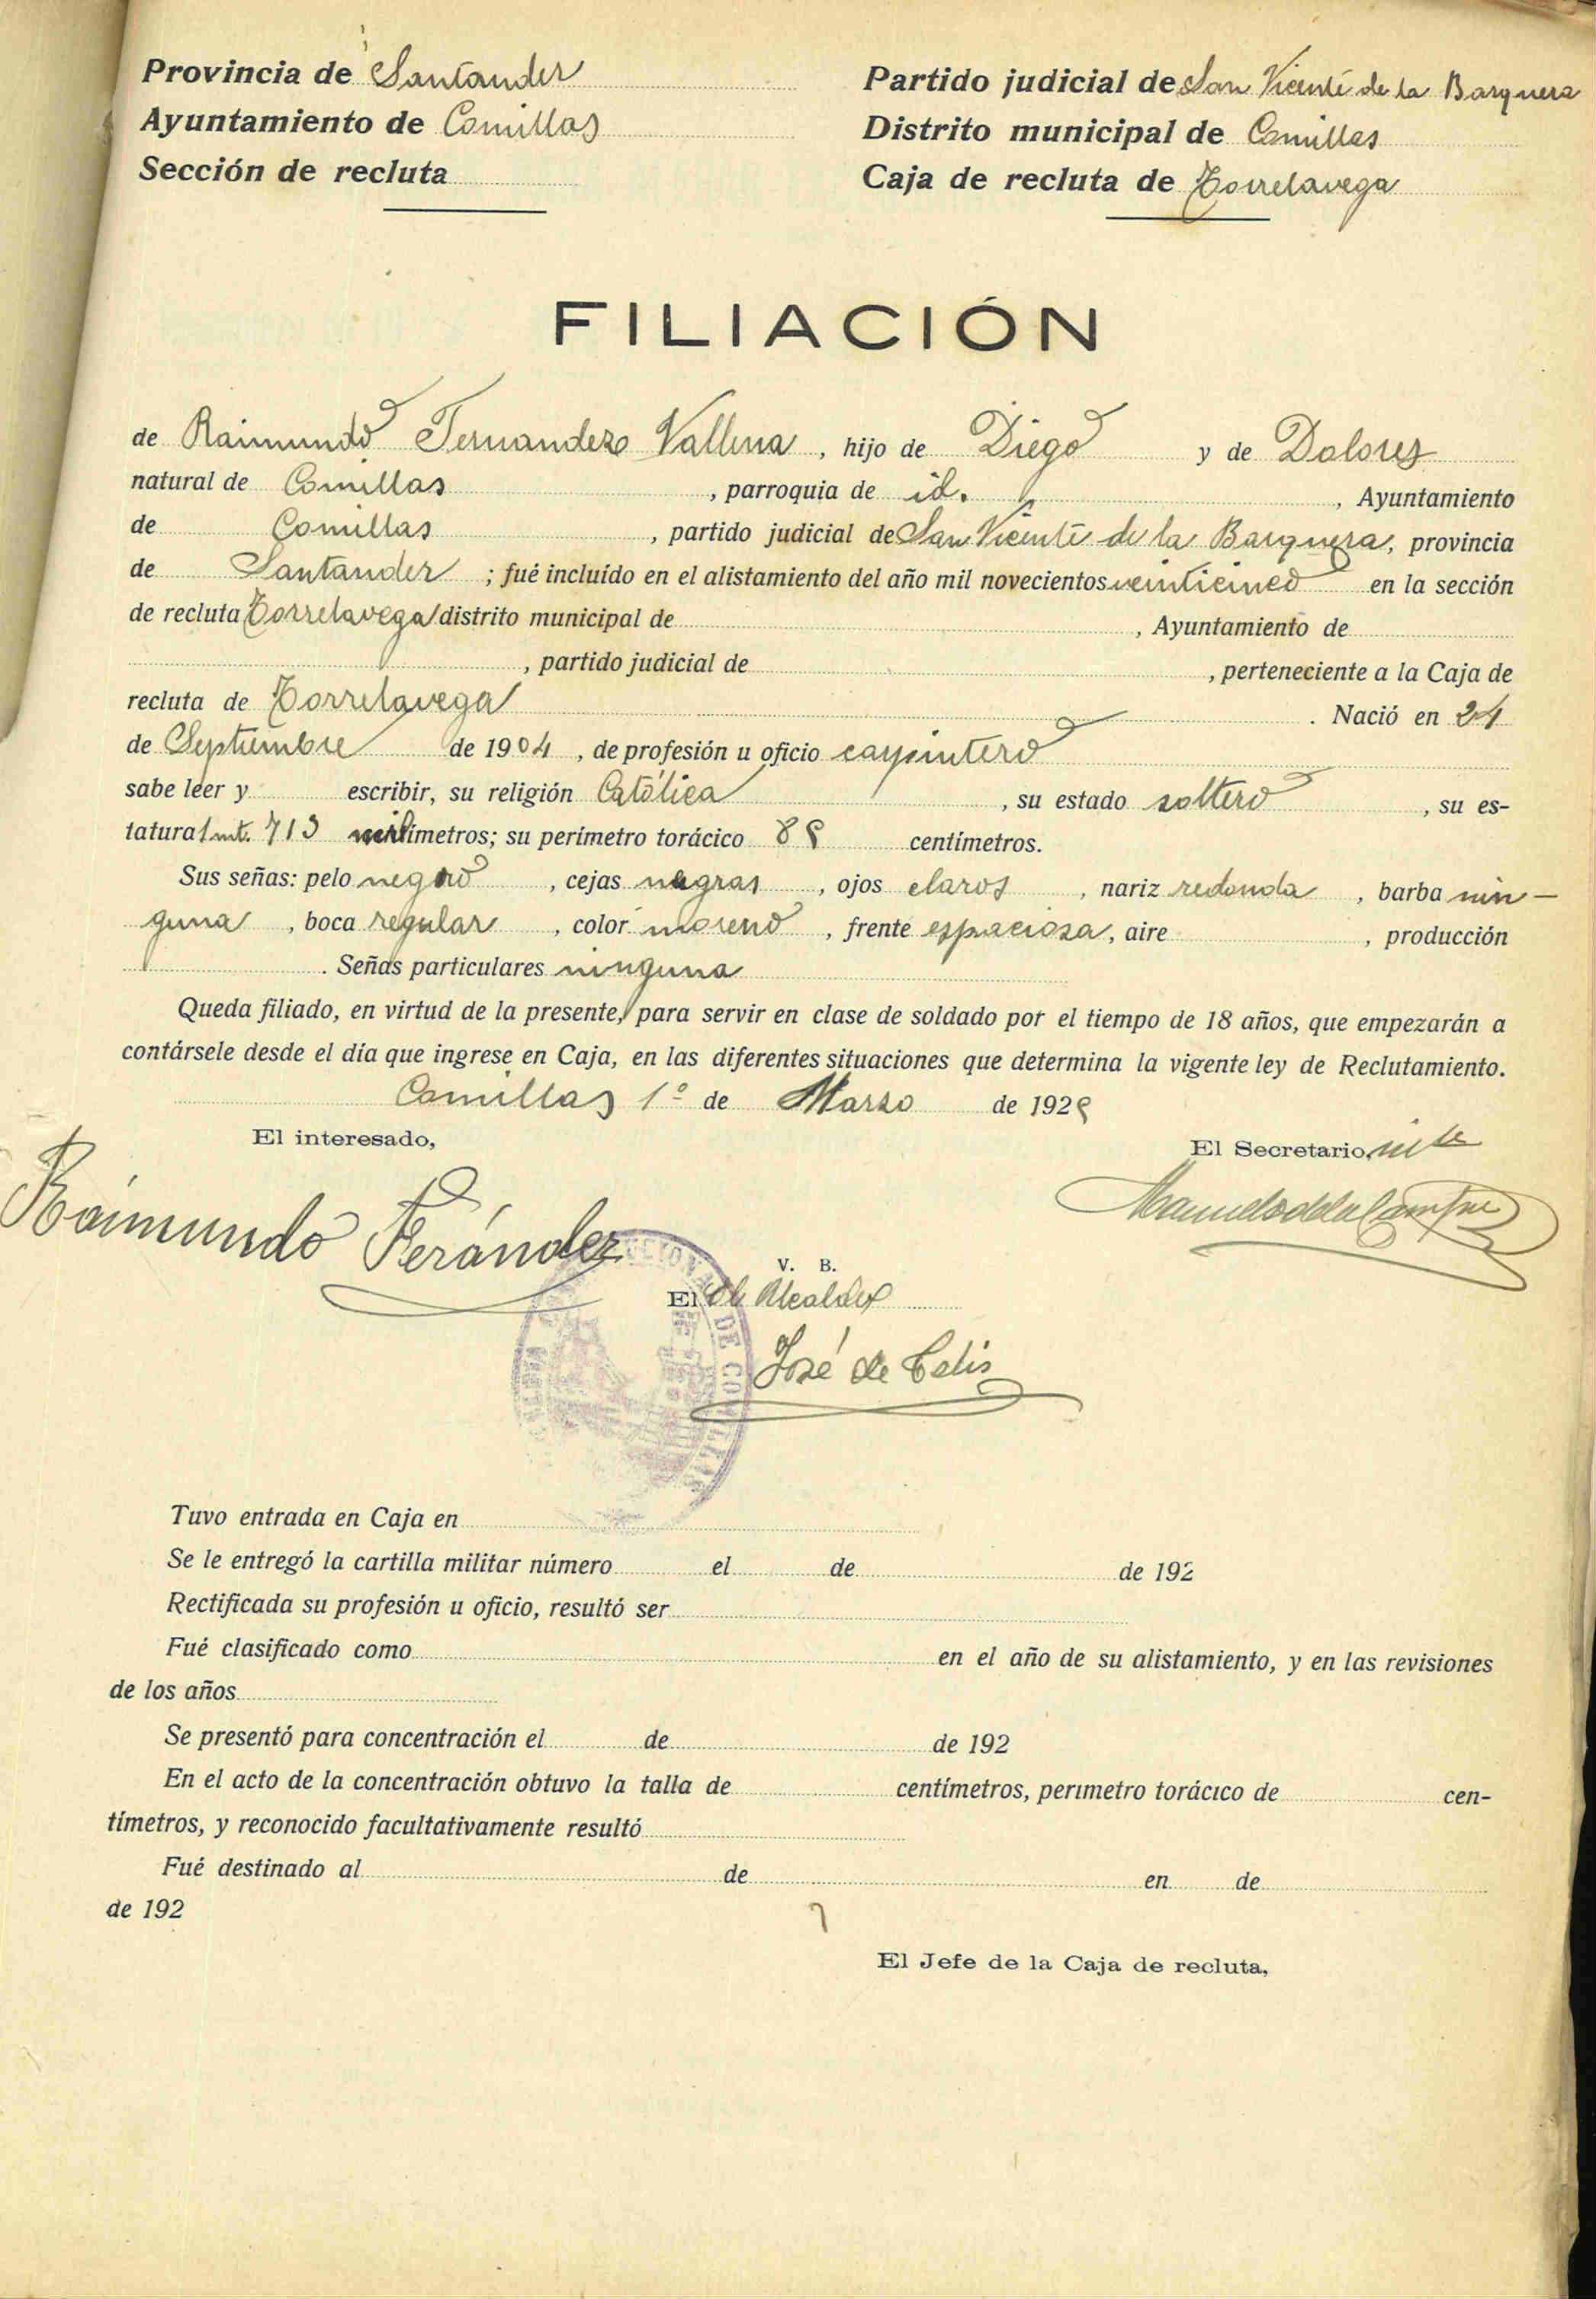 Provincia de Santander
Ayuntamiento de Comillas
Sección de recluta
Partido judicial de San Vicente de la Barquera
Distrito municipal de Comillas
Caja de recluta de Torrelavega
FILIACIÓN
de Raimundo Fernandez Vallina, hijo de Diego y de Dolores
natural de Comillas, parroquia de id., Ayuntamiento
de Comillas, partido judicial de San Vicente de la Barquera, provincia
de Santander; fué incluído en el alistamiento del año mil novecientos veinticinco en la sección
de recluta Torrelavega distrito municipal de, Ayuntamiento de
, partido judicial de, perteneciente a la Caja de
recluta de Torrelavega. Nació en 24
de Septiembre de 1904, de profesión u oficio carpintero
sabe leer y escribir, su religión Católica, su estado soltero, su es-
tatura 1 mt. 713 milímetros; su perímetro torácico 89 centímetros.
Sus señas: pelo negro, cejas negras, ojos claros, nariz redonda, barba nin-
guna, boca regular, color moreno, frente espaciosa, aire, producción
. Señas particulares ninguna
Queda filiado, en virtud de la presente, para servir en clase de soldado por el tiempo de 18 años, que empezarán a
contársele desde el día que ingrese en Caja, en las diferentes situaciones que determina la vigente ley de Reclutamiento.
Comillas 1º de Marzo de 1925
El interesado,
El Secretario,
Raimundo Ferández
V. B.
El Alcalde
José de Celis
DE COMILLAS
Tuvo entrada en Caja en
Se le entregó la cartilla militar número el de de 192
Rectificada su profesión u oficio, resultó ser
Fué clasificado como en el año de su alistamiento, y en las revisiones
de los años
Se presentó para concentración el de de 192
En el acto de la concentración obtuvo la talla de centímetros, perímetro torácico de cen-
tímetros, y reconocido facultativamente resultó
Fué destinado al de en de
de 192
El Jefe de la Caja de recluta,